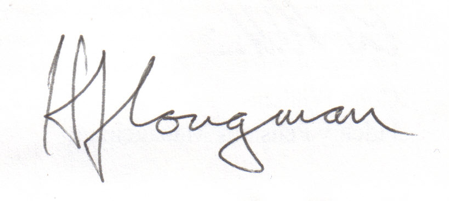 HJ Longman